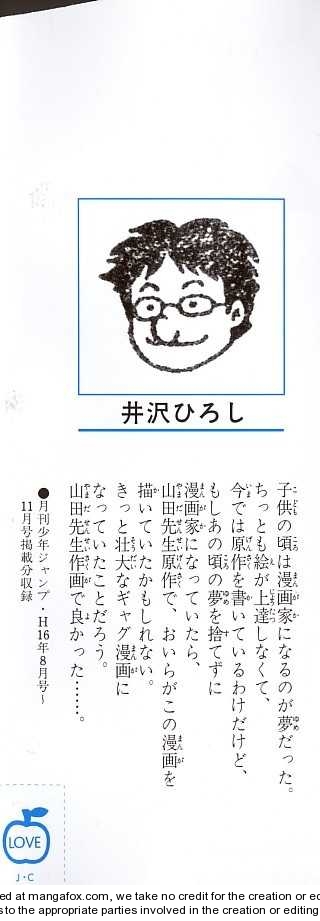 井沢ひろし
子供の頃は漫画家になるのが夢だった。
ちっとも絵が上達しなくて、
今では原作を書いているわけだけど、
もしあの頃の夢を捨てずに
漫画家になっていたら、
山田先生原作で、おいらがこの漫画を
描いていたかもしれない。
きっと壮大なギャグ漫画に
なっていたことだろう。
山田先生作画で良かった……。
●月刊少年ジャンプ・H16年8月号〜
11月号掲載分収録
LOVE
J・C
ed at mangafox.com, we take no credit for the creation or ed
s to the appropriate parties involved in the creation or editing